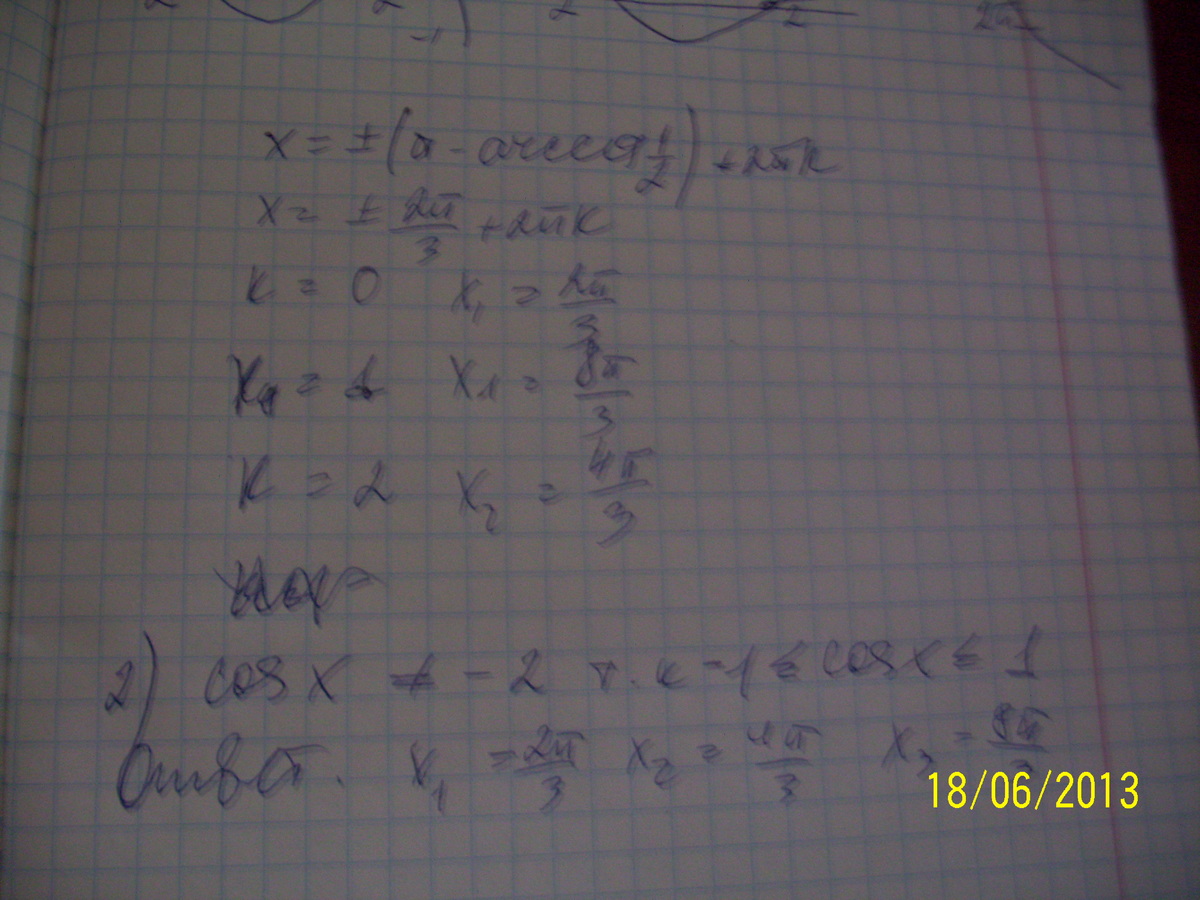 2 2 2 2 2π
-1
x = ± (π - arccos 1/2) + 2πk
x = ± 2π/3 + 2πk
k = 0 x₁ = 2π/3
= 1 x₁ = 8π/3
k = 2 x₂ = 4π/3
2) cos x ≠ - 2 т.к -1 ≤ cos x ≤ 1
Ответ. x₁ = 2π/3 x₂ = 4π/3 x₃ = 8π/3
18/06/2013